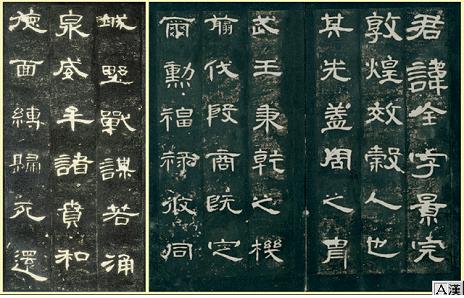 君諱全字景完
敦煌效穀人也
其先蓋周之胄
武王秉乾之機
翦伐殷商既定
爾勳福祿攸同
城野戰謀若涌
泉威牟諸賁和
德面縛歸死還
A漢